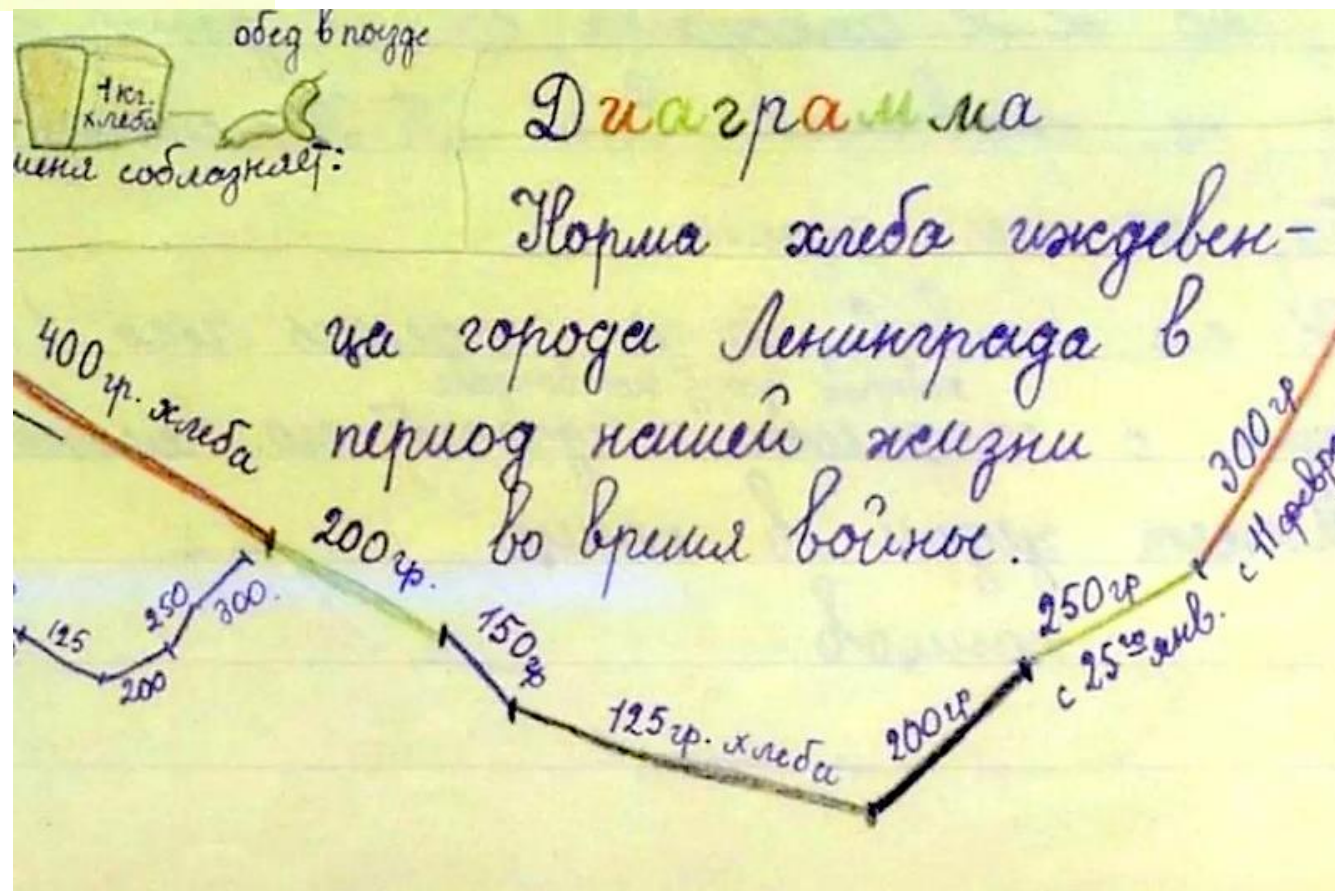 обед в поезде
1 кг.
хлеба
меня соблазняет:
Диаграмма
Норма хлеба иждевен-
ца города Ленинграда в
период нашей жизни
во время войны.
400 гр. хлеба
200 гр.
150 гр
125 гр. хлеба
200 гр
250 гр
с 25го янв.
300 гр
с 11 февр
125
200
250
300.